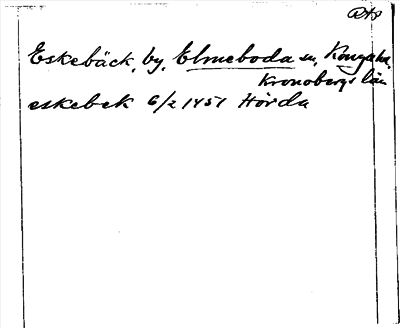 Eskebäck, by, Elmeboda sn, Konga hd,
Kronobergs län
eskebek 6/2 1451 Hörda